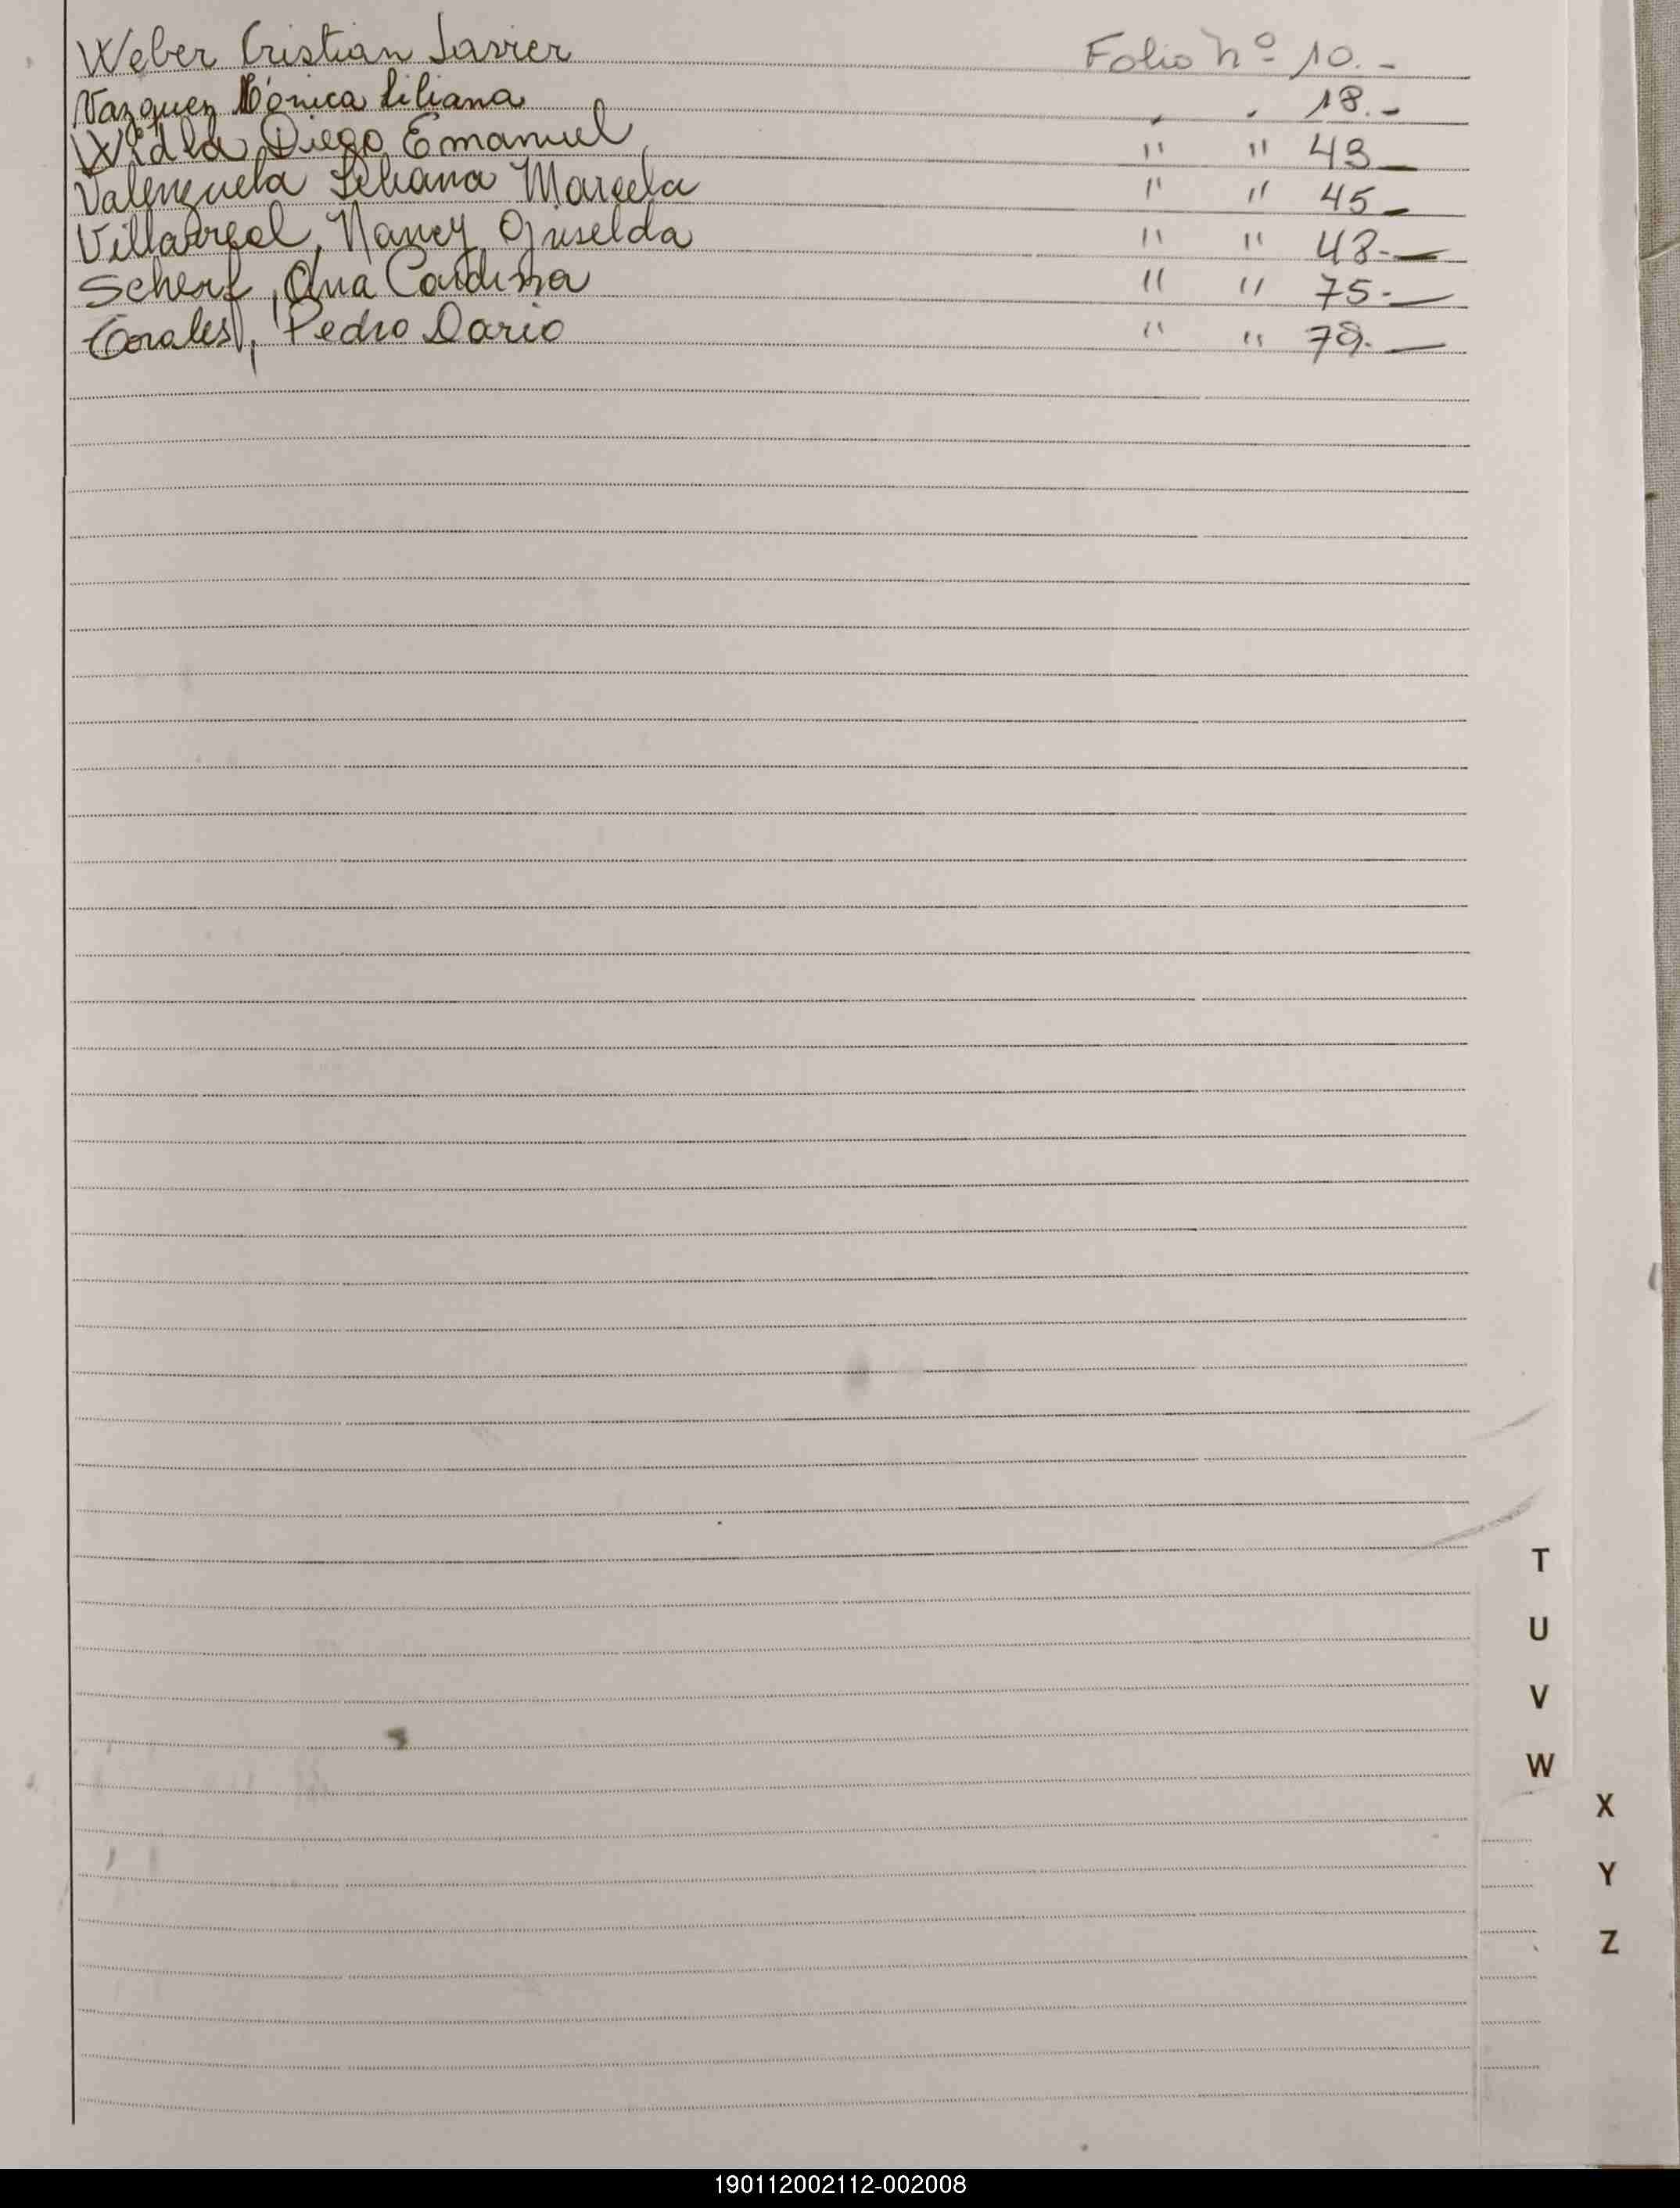 Weber Cristian Javier Folio Nº 10.-
Vazquez Mónica Liliana , , 18.-
Widla Diego Emanuel " " 43_
Valenzuela Liliana Marcela " " 45_
Villarreal, Nancy Griselda " " 48-_
Scherf, Ana " " 75-_
Corales, Pedro Dario " " 79._
T
U
V
W
X
Y
Z
190112002112-002008